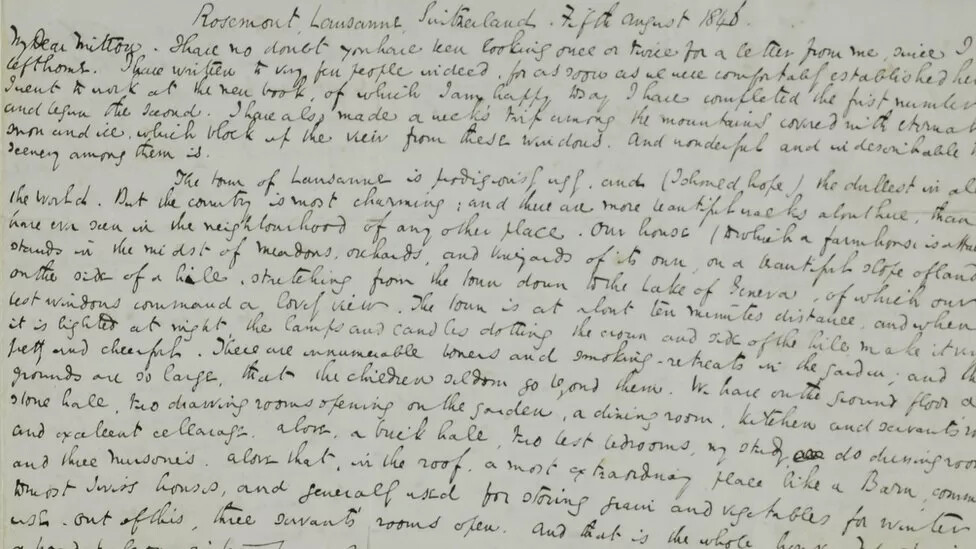 Rosemont, Lausanne, Switzerland. Fifth August 1846.
My Dear Mitton. I have no doubt you have been looking once or twice for a letter from me, since I
left home. I have written to very few people indeed, for as soon as we were comfortably established he
I went to work at the new book, of which I am happy today I have completed the first number
and begun the second. I have also made a week's trip among the mountains covered with eternal
snow and ice, which block up the view from these windows. And wonderful and indescribable
scenery among them is.
The town of Lausanne is prodigiously ugly, and (I should hope) the dullest in al
the World. But the country is most charming; and there are more beautiful walks about here, than
have ever seen in the neighbourhood of any other place. Our house (to which a farmhouse is atta
stands in the midst of meadows, orchards, and vineyards of its own, on a beautiful slope of land
on the side of a hill, stretching from the town down to the Lake of Geneva, of which our
best windows command a lovely view. The town is at about ten minutes distance, and when
it is lighted at night the lamps and candles dotting the crown and side of the hill make it
pretty and cheerful. There are innumerable bowers and smoking-retreats in the garden; and th
grounds are so large, that the children seldom go beyond them. We have on the ground floor a
stone hall, two drawing rooms opening on the garden, a dining room, kitchen and servants' r
and excellent cellarage. above, a brick hall, two best bedrooms, my study, do dressing roo
and three nurseries. above that, in the roof, a most extraordinary place like a Barn, comm
to most Swiss houses, and generally used for storing grain and vegetables for winter
use. out of this, three servants' rooms open. And that is the whole